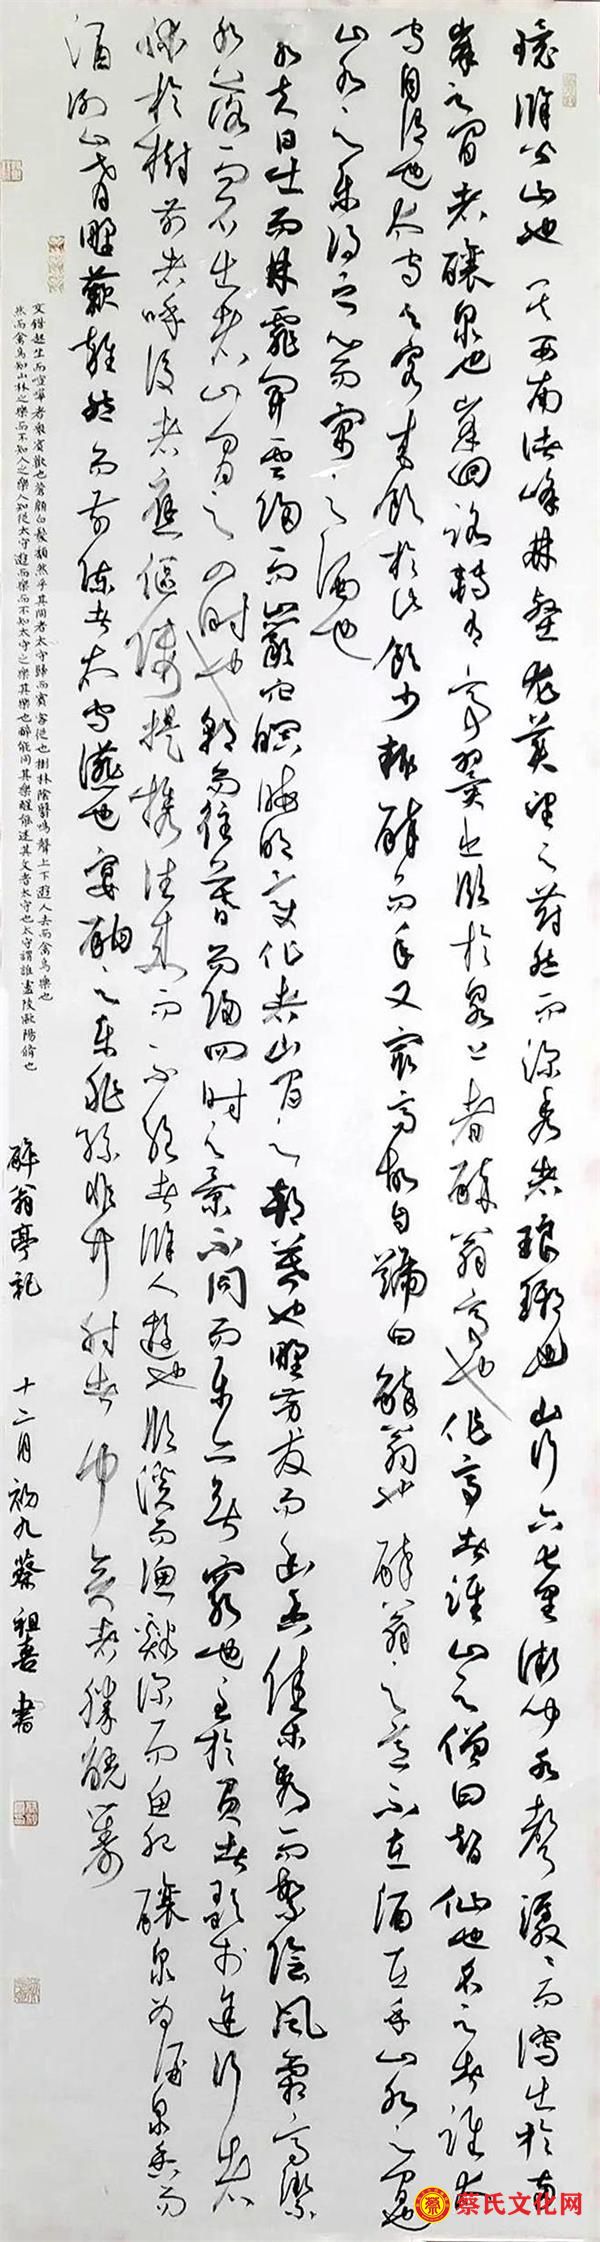 環滁皆山也其西南諸峰林壑尤美望之蔚然而深秀者琅琊也山行六七里漸聞水聲潺〻而瀉出於兩
峯之間者釀泉也峯回路轉有亭翼然臨於泉上者醉翁亭也作亭者誰山之僧曰智仙也名之者誰太
守自謂也太守與客來飲於此飲少輒醉而年又最高故自號曰醉翁也醉翁之意不在酒在乎山水之間也
山水之樂得之心而寓之酒也
若夫日出而林霏開雲歸而巖穴暝晦明變化者山間之朝暮也野芳發而幽香佳木秀而繁陰風霜高潔
水落而石出者山間之四時也朝而往暮而歸四時之景不同而樂亦無窮也至於負者歌於途行者
休於樹前者呼後者應傴僂提攜往來而不絕者滁人遊也臨溪而漁谿深而魚肥釀泉為酒泉香而
酒洌山肴野蔌雜然而前陳者太守讌也宴酣之樂非絲非竹射者中弈者勝觥籌
交錯起坐而喧譁者衆賓歡也蒼顏白髮頹然乎其間者太守歸而賓客從也樹林陰翳鳴聲上下遊人去而禽鳥樂也
然而禽鳥知山林之樂而不知人之樂人知從太守遊而樂而不知太守之樂其樂也醉能同其樂醒能述其文者太守也太守謂誰廬陵歐陽脩也
醉翁亭記 十二月初九蔡祖喜書
蔡氏文化网